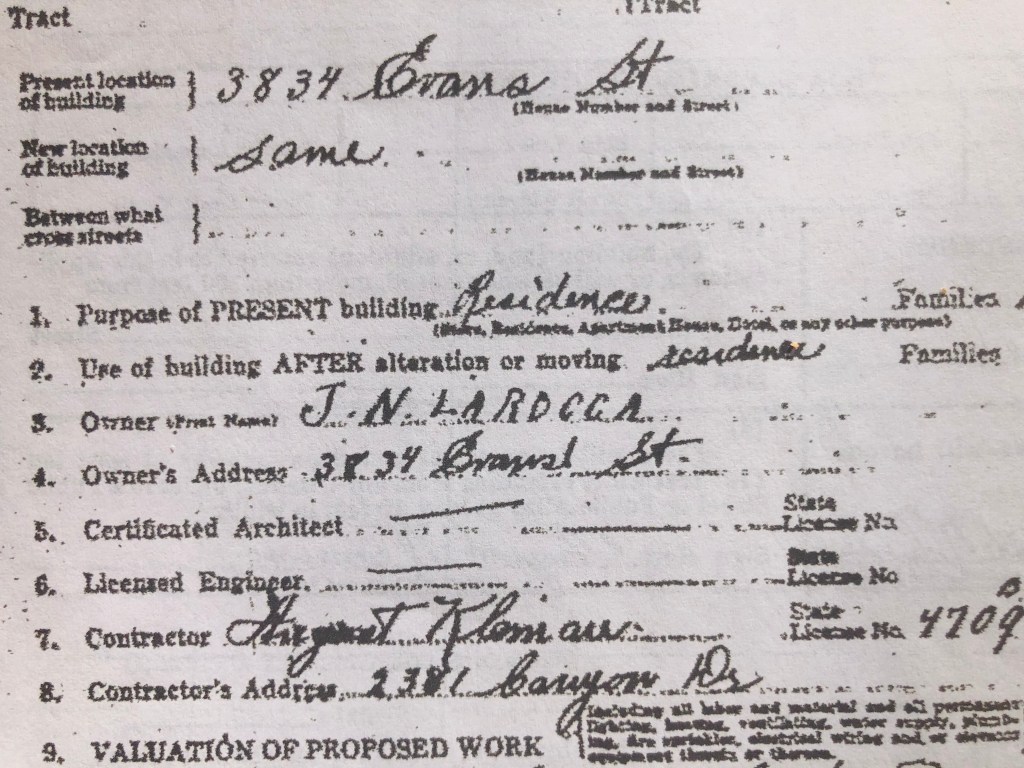 Tract Tract
Present location of building } 3834 Evans St
(House Number and Street)
New location of building } Same
(House Number and Street)
Between what cross streets }
1. Purpose of PRESENT building Residence Families
(Store, Residence, Apartment House, Hotel, or any other purpose)
2. Use of building AFTER alteration or moving residence Families
3. Owner (Print Name) J. N. LAROCCA
4. Owner's Address 3834 Evans St.
5. Certificated Architect State License No.
6. Licensed Engineer State License No
7. Contractor August State License No. 4709
8. Contractor's Address 2381 Canyon Dr
{ Including all labor and material and all permanent
lighting, heating, ventilating, water supply, plumb-
ing, fire sprinkler, electrical wiring and or elevator
equipment therein or thereon.
9. VALUATION OF PROPOSED WORK